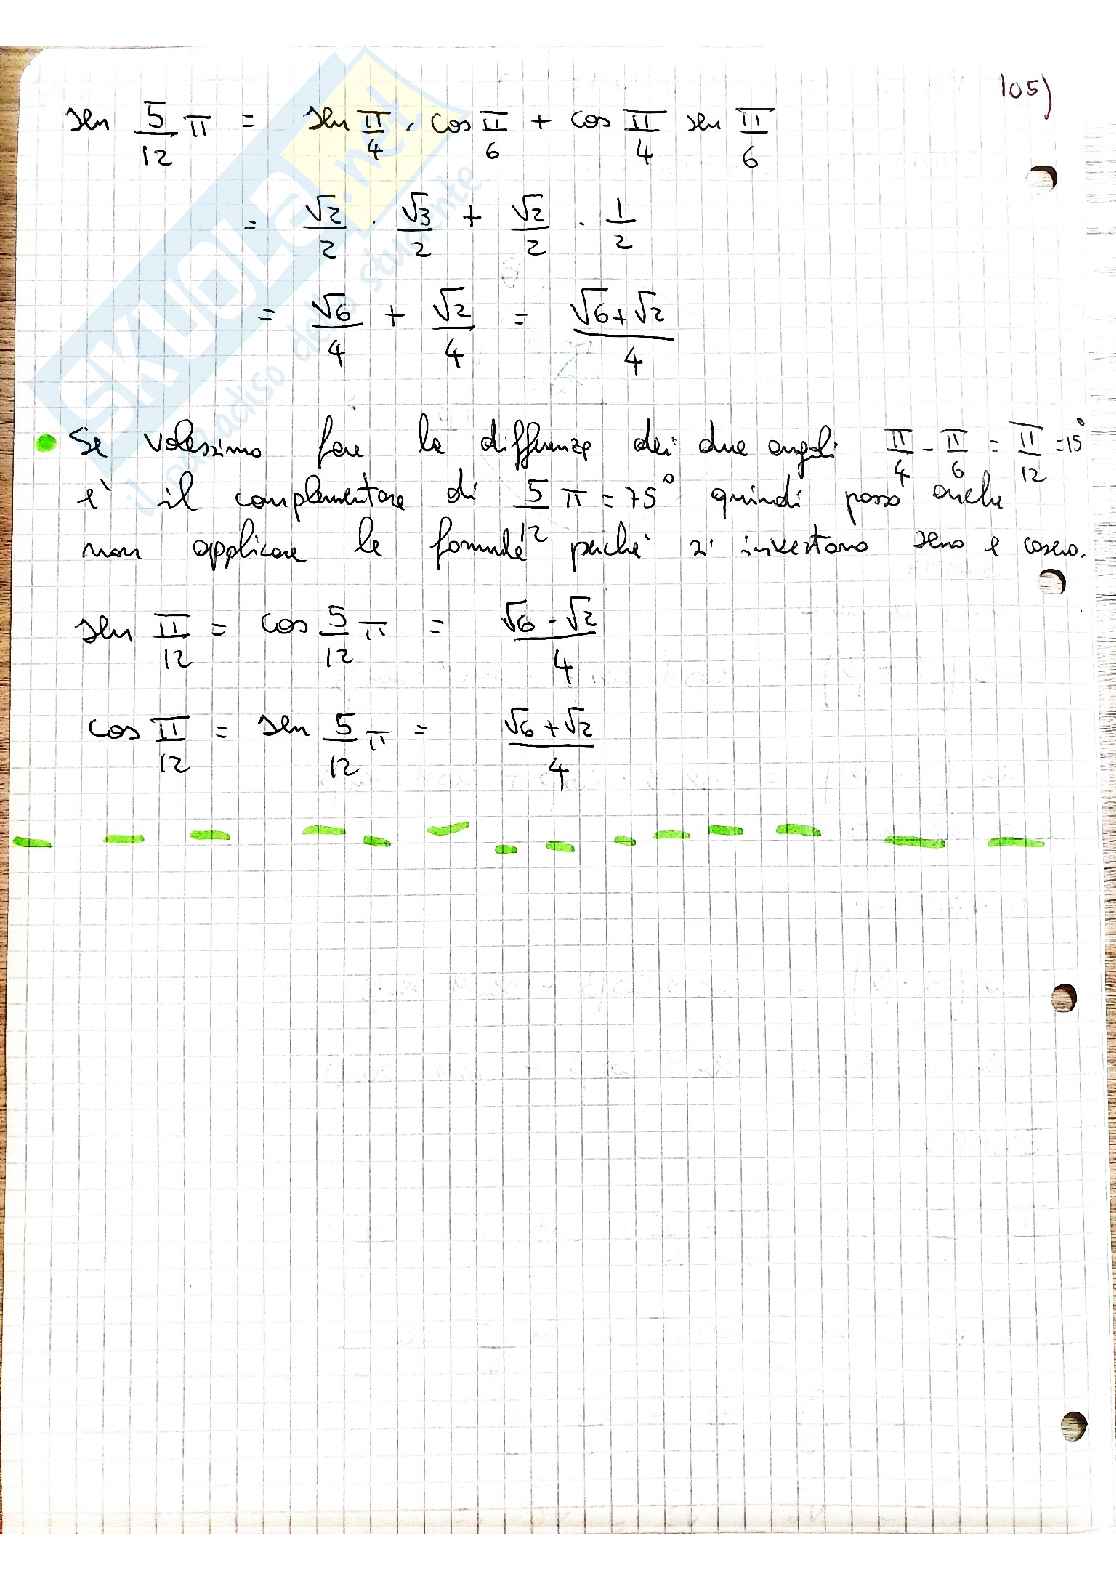 105)
sen 5/12 π = sen π/4 · cos π/6 + cos π/4 sen π/6
= √2/2 · √3/2 + √2/2 · 1/2
= √6/4 + √2/4 = √6+√2/4
• Se volessimo fare la differenza dei due angoli π/4 - π/6 = π/12 = 15°
e' il complementare di 5/12 π = 75° quindi posso anche
non applicare le formule perché si invertono seno e coseno.
sen π/12 = cos 5/12 π = √6-√2/4
cos π/12 = sen 5/12 π = √6+√2/4
SKUOLA.net
il paradiso dello studente